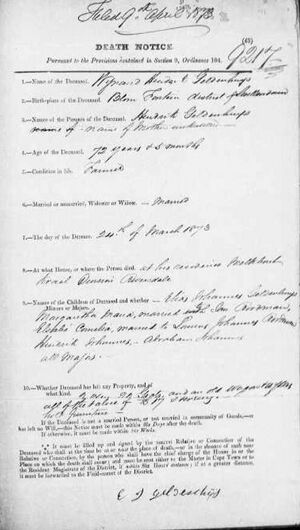 Filed 9th April 1873
(43)
9217
DEATH NOTICE
Pursuant to the Provisions contained in Section 9, Ordinance 104.
1.—Name of the Deceased. Wynand Hendrik Geldenhuys
2.—Birth-place of the Deceased. Blom Fontein district of Swellendam
3.—Names of the Parents of the Deceased. Hendrik Geldenhuys
name of Mother unknown
4.—Age of the Deceased. 72 years & 5 months
5.—Condition in life. Farmer
6.—Married or unmarried, Widower or Widow. — Married
7.—The day of the Decease. 24th of March 1873
8.—At what House, or where the Person died. at his residence Melkhout
Kraal Division Riversdale
9.—Names of the Children of Deceased and whether Minors or Majors. Johannes Geldenhuys
Margaretha Maria, married to Jan
Cornelia, married to Johannes
Hendrik Johannes, Abraham Johannes
all Majors.
10.—Whether Deceased has left any Property, and of
what kind. and an old Wagon & a few
all of the value of
If the Deceased is not a married Person, or not married in community of Goods,—or
has left no Will,—this Notice must be made within Six Days after the death.
If otherwise, it must be made within Six Weeks.
It must be filled up and signed by the nearest Relative or Connection of the
Deceased who shall at the time be at or near the place of death; and in the absence of near
Relative or Connection, by the person who shall have the chief charge of the House in or the
Place on which the death shall occur; and must be sent either to the Master in Cape Town or to
the Resident Magistrate of the District, if within Six Hours distance; if at a greater distance,
it must be forwarded to the Field-cornet of the District.
E J Geldenhuys